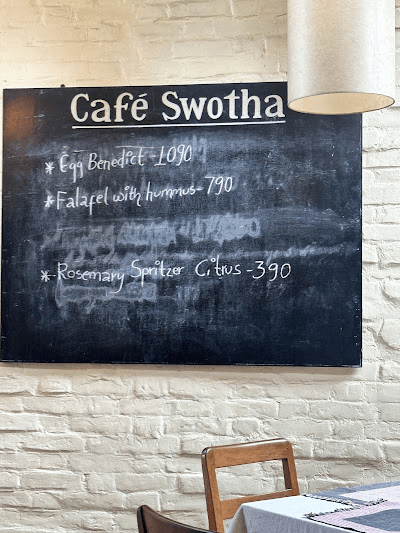 Café Swotha
* Egg Benedict - 1090
* Falafel with hummus - 790
* Rosemary Spritzer Citrus - 390